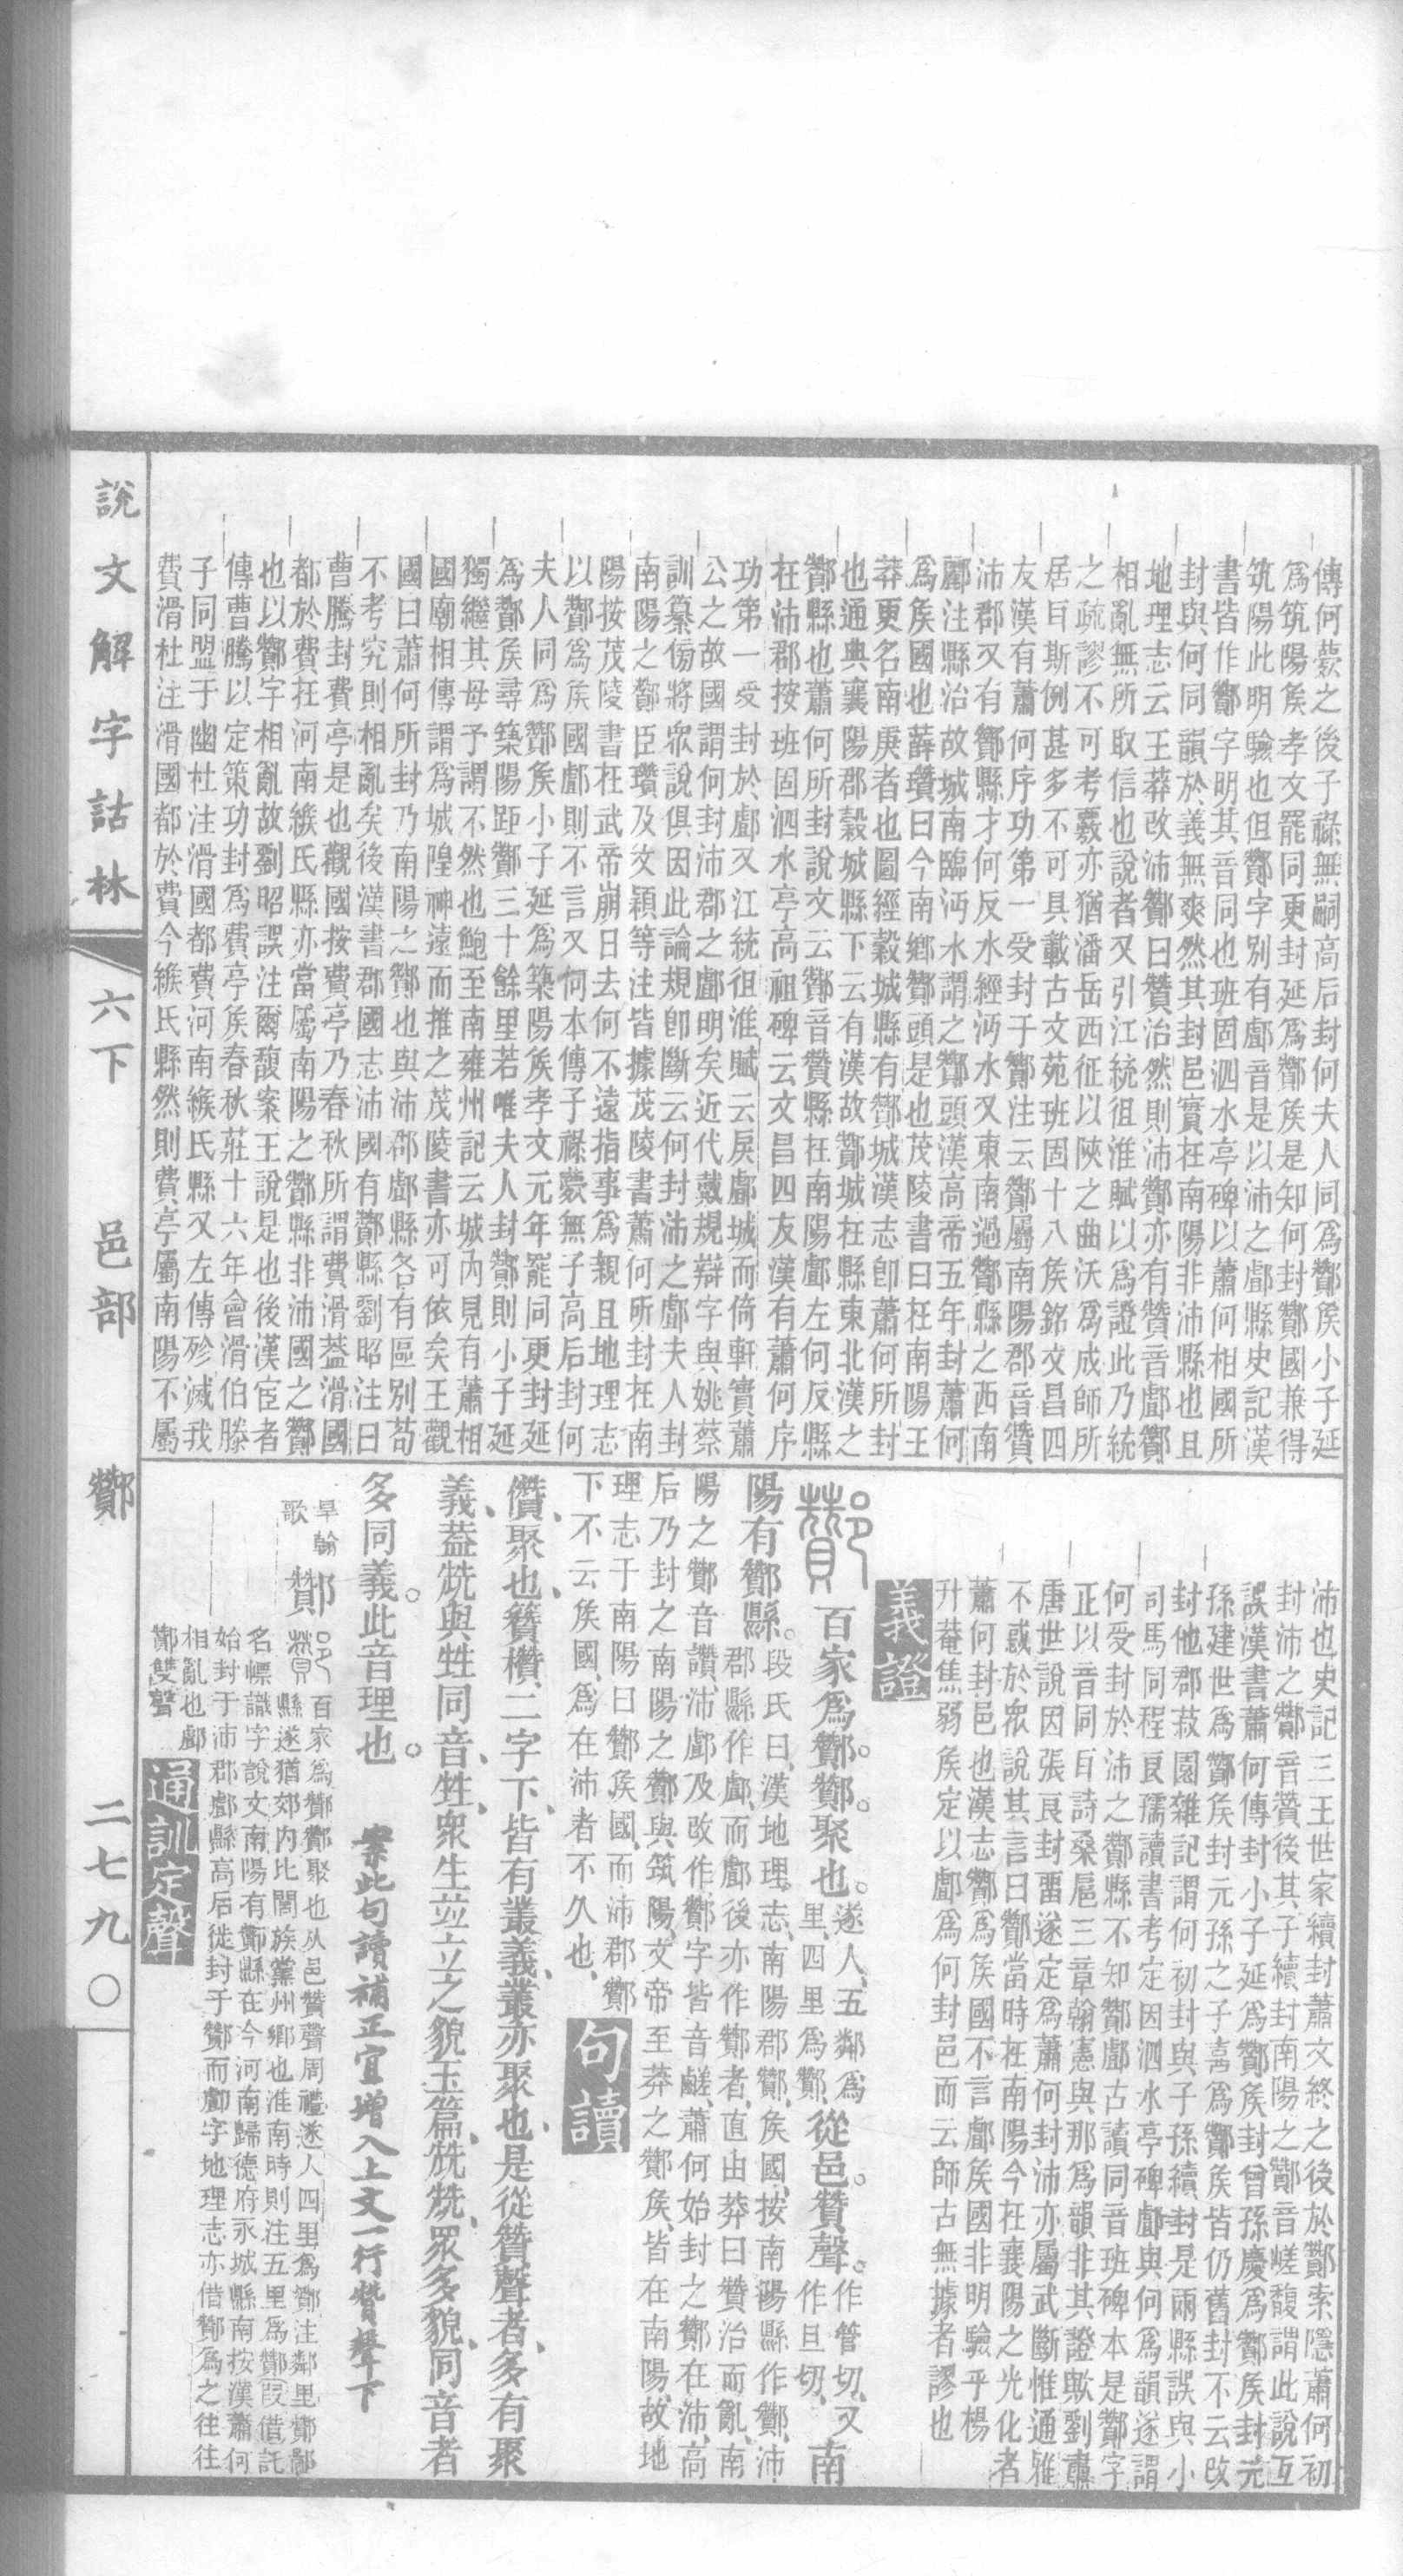 傳何薨之後子祿無嗣高后封何夫人同爲酇矦小子延
爲筑陽矦孝文罷同更封延爲酇矦是知何封酇國兼得
筑陽此明驗也但酇字別有鄌音是以沛之鄌縣史記漢
書皆作酇字明其音同也班固泗水亭碑以蕭何相國所
封與何同韻於義無爽然其封邑實在南陽非沛縣也且
地理志云王莽改沛酇曰贊治然則沛酇亦有贊音鄌酇
相亂無所取信也說者又引江統徂淮賦以爲證此乃統
之疏謬不可考覈亦猶潘岳西征以陝之曲沃爲成師所
居㠯斯例甚多不可具載古文苑班固十八矦銘文昌四
友漢有蕭何序功第一受封于酇注云酇屬南陽郡音贊
沛郡又有酇縣才何反水經沔水又東南過酇縣之西南
酈注縣治故城南臨沔水謂之酇頭漢高帝五年封蕭何
爲矦國也薛瓚曰今南鄉酇頭是也茂陵書曰在南陽王
莽更名南庚者也圖經穀城縣有酇城漢志卽蕭何所封
也通典襄陽郡穀城縣下云有漢故酇城在縣東北漢之
酇縣也蕭何所封說文云酇音贊縣在南陽鄌左何反縣
在沛郡按班固泗水亭高祖碑云文昌四友漢有蕭何序
功第一受封於鄌又江統徂淮賦云戾鄌城而倚軒實蕭
公之故國謂何封沛郡之鄌明矣近代戴規辯字與姚蔡
訓纂㑂將衆說俱因此論規卽斷云何封沛之鄌夫人封
南陽之酇臣瓚及文穎等注皆據茂陵書蕭何所封在南
陽按茂陵書在武帝崩日去何不遠指事爲親且地理志
以酇爲矦國鄌則不言又何本傳子祿薨無子高后封何
夫人同爲酇矦小子延爲築陽矦孝文元年罷同更封延
爲酇矦尋築陽距酇三十餘里若唯夫人封酇則小子延
獨繼其母予謂不然也鮑至南雍州記云城內見有蕭相
國廟相傳謂爲城隍神遠而推之茂陵書亦可依矣王觀
國曰蕭何所封乃南陽之酇也與沛郡鄌縣各有區別苟
不考究則相亂矣後漢書郡國志沛國有酇縣劉昭注曰
曹騰封費亭是也觀國按費亭乃春秋所謂費滑葢滑國
都於費在河南緱氏縣亦當屬南陽之酇縣非沛國之酇
也以酇字相亂故劉昭誤注爾馥案王說是也後漢宦者
傳曹騰以定策功封爲費亭矦春秋莊十六年會滑伯滕
子同盟于幽杜注滑國都費河南緱氏縣又左傳殄滅我
費滑杜注滑國都於費今緱氏縣然則費亭屬南陽不屬
沛也史記三王世家續封蕭文終之後於酇索隱蕭何初
封沛之酇音贊後其子續封南陽之酇音嵯馥謂此說互
誤漢書蕭何傳封小子延爲酇矦封曾孫慶爲酇矦封元
孫建世爲酇矦封元孫之子喜爲酇矦皆仍舊封不云改
封他郡菽園雜記謂何初封與子孫續封是兩縣誤與小
司馬同程良孺讀書考定因泗水亭碑鄌與何爲韻遂謂
何受封於沛之酇縣不知酇鄌古讀同音班碑本是酇字
正以音同㠯詩桑扈三章翰憲與那爲韻非其證歟劉肅
唐世說因張良封畱遂定爲蕭何封沛亦屬武斷惟通雅
不惑於衆說其言曰酇當時在南陽今在襄陽之光化者
蕭何封邑也漢志酇爲矦國不言鄌矦國非明驗乎楊
升菴焦弱矦定以鄌爲何封邑而云師古無據者謬也
義證
酇 百家爲酇。酇。聚也。遂人、五鄰爲里、四里爲酇、從邑。贊聲。作管切、又作旦切、南
陽有酇縣。段氏曰、漢地理志、南陽郡酇、矦國、按南陽縣作酇、沛郡縣作鄌、而鄌後亦作酇者、直由莽曰贊治而亂、南
陽之酇音讚、沛鄌及改作酇字皆音鹺、蕭何始封之酇在沛、高
后乃封之南陽之酇與筑陽、文帝至莽之酇矦、皆在南陽、故地
理志于南陽曰酇矦國、而沛郡酇
下不云矦國、爲在沛者不久也、
句讀
儹、聚也、簪欑、二字下、皆有叢義、叢亦聚也、是從贊聲者、多有聚
義、葢兟與甡同音、甡、衆生竝立之皃、玉篇、兟兟、眾多皃、同音者
多同義。此音理也。 案此句讀補正宜增入上文一行贊聲下
旱翰歌
酇 百家爲酇酇聚也从邑贊聲周禮遂人四里爲酇注鄰里酇鄙
縣遂猶郊內比閭族黨州鄉也淮南時則注五里爲酇叚借託
名幖識字說文南陽有酇縣在今河南歸德府永城縣南按漢蕭何
始封于沛郡鄌縣高后徙封于酇而鄌字地理志亦借酇爲之往往
相亂也鄌
酇雙聲
通訓定聲
說文解字詁林 六下 邑部 酇 二七九〇